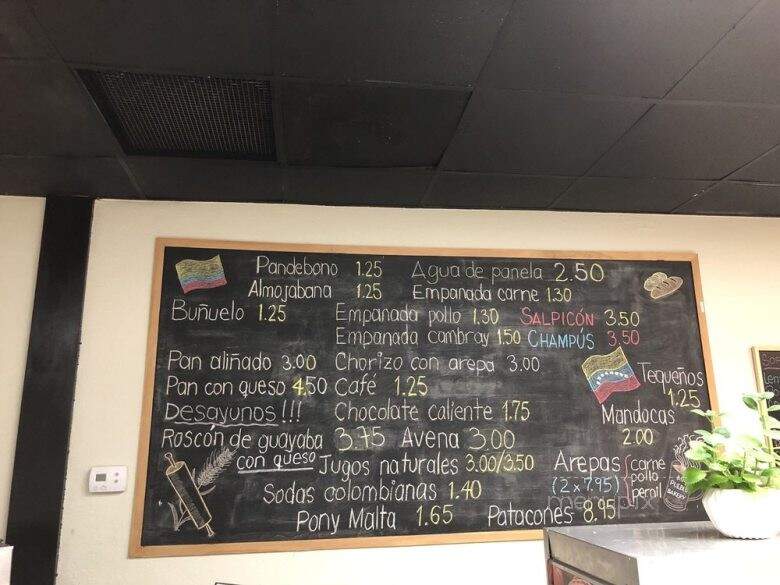 Pandebono 1.25 Agua de panela 2.50
Almojabana 1.25 Empanada carne 1.30
Buñuelo 1.25 Empanada pollo 1.30 SALPICÓN 3.50
Empanada cambray 1.50 CHAMPÚS 3.50
Pan aliñado 3.00 Chorizo con arepa 3.00
Tequeños 1.25
Pan con queso 4.50 Café 1.25
Desayunos!!! Chocolate caliente 1.75
Mandocas 2.00
Roscón de guayaba con queso 3.75 Avena 3.00
Jugos naturales 3.00/3.50
Arepas (2 x 7.95) carne pollo pernil
Sodas colombianas 1.40
Pony Malta 1.65 Patacones 8.95
BAKERY